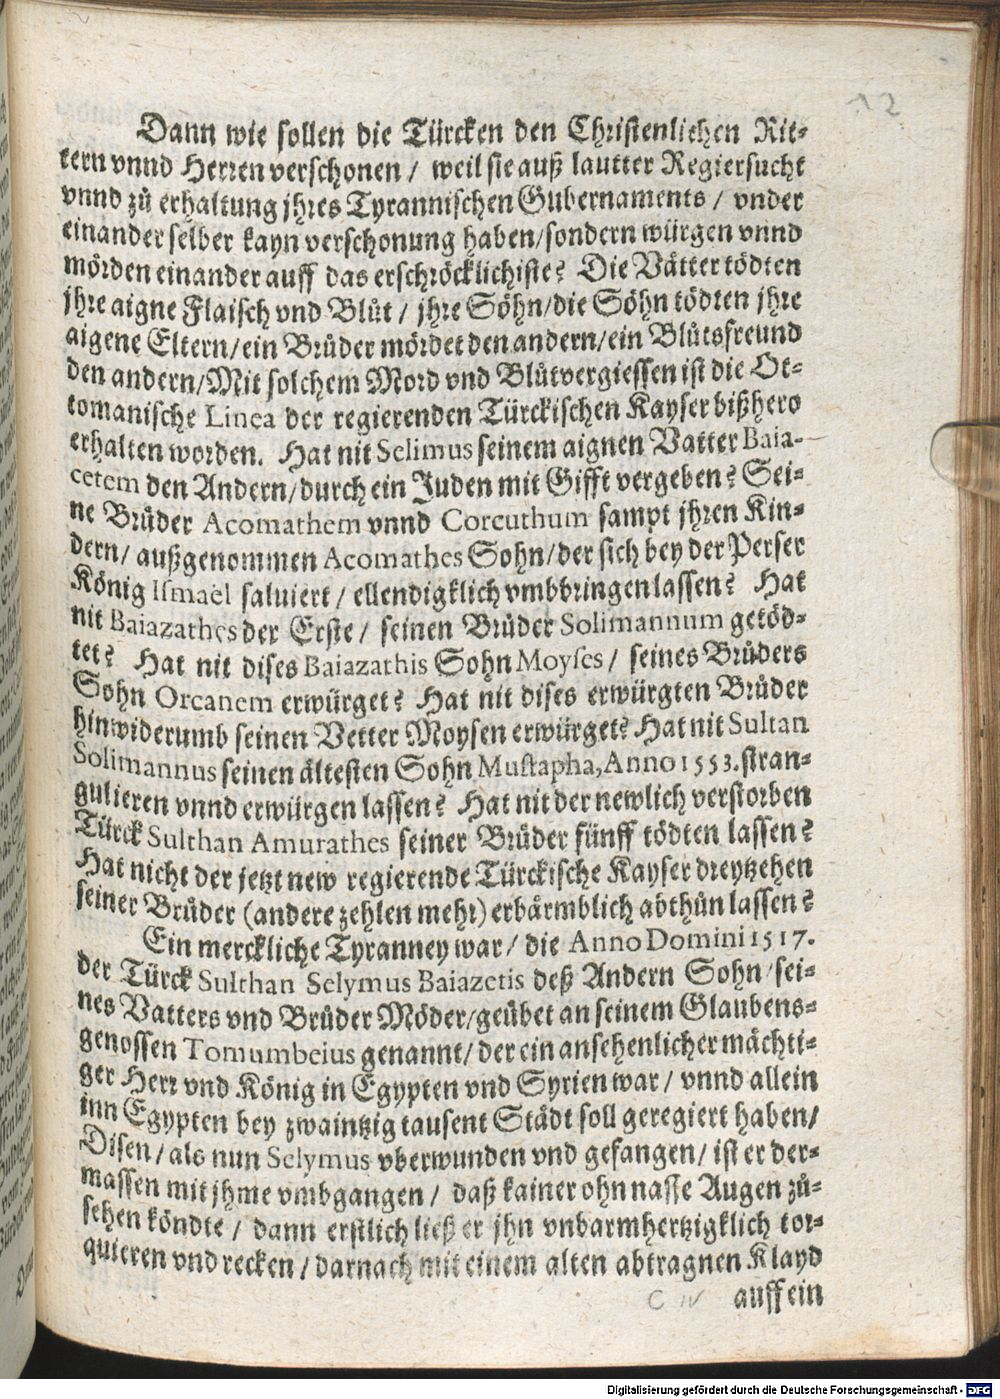 12
Dann wie sollen die Türcken den Christenlichen Rit-
tern vnnd Herren verschonen / weil sie auß lautter Regiersucht
vnnd zů erhaltung jhres Tyrannischen Gubernaments / vnder
einander selber kayn verschonung haben/sondern würgen vnnd
mörden einander auff das erschröcklichiste? Die Vätter tödten
jhre aigne Flaisch vnd Blůt / jhre Söhn/die Söhn tödten jhre
aigene Eltern/ein Brůder mördet den andern/ein Blůtsfreund
den andern/Mit solchem Mord vnd Blůtvergiessen ist die Ot-
tomanische Linea der regierenden Türckischen Kayser bißhero
erhalten worden. Hat nit Selimus seinem aignen Vatter Baia-
cetem den Andern/durch ein Juden mit Gifft vergeben? Sei-
ne Brůder Acomathem vnnd Corcuthum sampt jhren Kin-
dern/ außgenommen Acomathes Sohn/der sich bey der Perser
König Ismaël saluiert / ellendigklich vmbbringen lassen? Hat
nit Baiazathes der Erste / seinen Brůder Solimannum getöd-
tet? Hat nit dises Baiazathis Sohn Moyses / seines Brůders
Sohn Orcanem erwürget? Hat nit dises erwürgten Brůder
hinwiderumb seinen Vetter Moysen erwürget? Hat nit Sultan
Solimannus seinen ältesten Sohn Mustapha, Anno 1553. stran-
gulieren vnnd erwürgen lassen? Hat nit der newlich verstorben
Türck Sulthan Amurathes seiner Brůder fünff tödten lassen?
Hat nicht der jetzt new regierende Türckische Kayser dreytzehen
seiner Brůder (andere zehlen mehr) erbärmblich abthůn lassen?
Ein merckliche Tyranney war / die Anno Domini 1517.
der Türck Sulthan Selymus Baiazetis deß Andern Sohn / sei-
nes Vatters vnd Brůder Möder/geübet an seinem Glaubens-
genossen Tomumbeius genannt/ der ein ansehenlicher mächti-
ger Herr vnd König in Egypten vnd Syrien war / vnnd allein
inn Egypten bey zwaintzig tausent Städt soll geregiert haben/
Disen / als nun Selymus vberwunden vnd gefangen / ist er der-
massen mit jhme vmbgangen / daß kainer ohn nasse Augen zů-
sehen köndte / dann erstlich ließ er jhn vnbarmhertzigklich tor-
quieren vnd recken / darnach mit einem alten abtragnen Klayd
C iv auff ein
Digitalisierung gefördert durch die Deutsche Forschungsgemeinschaft - DFG